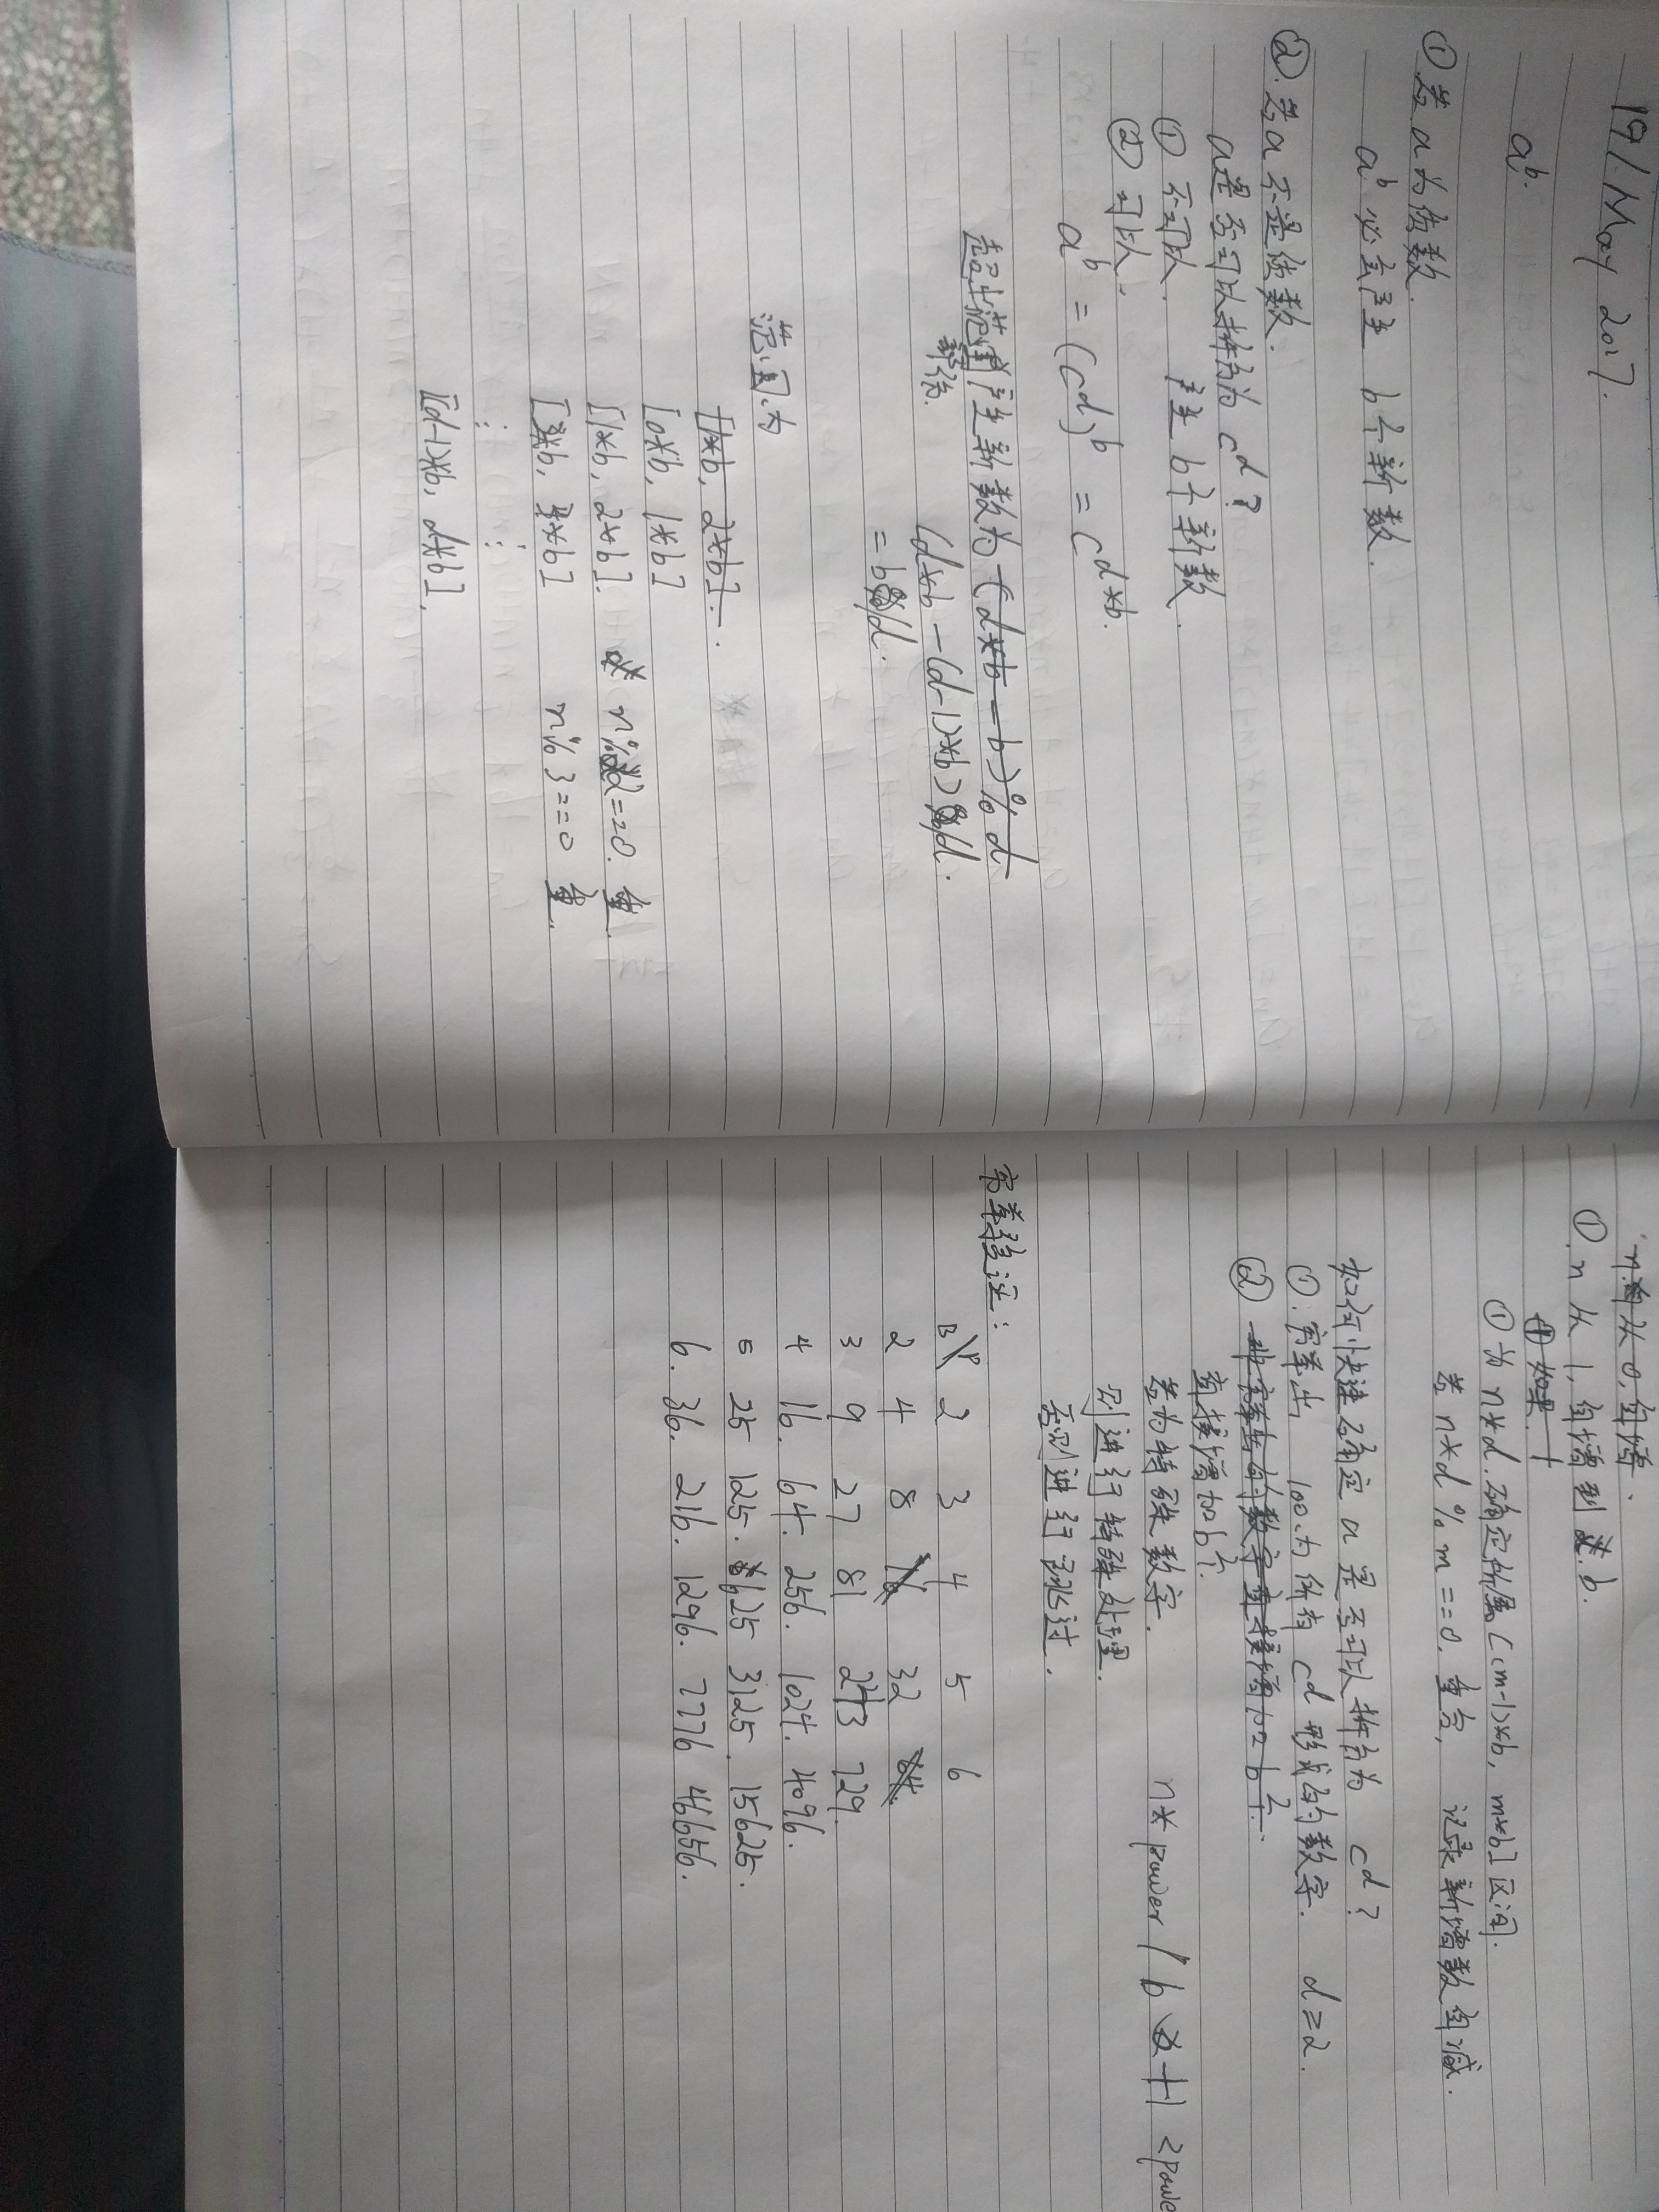 19/May 2017.
a^b.
① 若a为质数.
a^b 必会产生 b个新数.
②. 若a不是质数.
a是否可以拆分为 c^d ?
① 不可以. 产生 b个新数.
② 可以.
a^b = (c^d)^b = c^{d*b}.
超出范围产生新数为 (d*b-b)%d
部份.
(d*b-(d-1)*b)/d.
=b/d.
范围为
[1*b, 2*b].
[0*b, 1*b]
[1*b, 2*b]. n%2==0. 重.
[3*b, *b] n%3==0 重.
⋮ ⋮
[(d-1)*b, d*b].
n 从 0, 自增.
①. n 从 1, 自增到 b.
① 如果.
① 为 n*d. 确定所属 [(m-1)*b, m*b] 区间.
若 n*d % m ==0. 重合, 记录新增数自减.
如何快速确定 a 是否可以拆分为 c^d ?
①. 穷举出 100内所有 c^d 形式的数字. d≥2.
② 非穷举出的数字直接增加 b个.
直接增加b个.
若为特殊数字. n* power / b +1 <powe
则进行特殊处理.
否则进行跳过.
穷举验证:
B\P 2 3 4 5 6
2 4 8 16 32 64.
3 9 27 81 243 729.
4 16. 64. 256. 1024. 4096.
5 25 125. 625 3125. 15625.
6. 36. 216. 1296. 7776 46656.